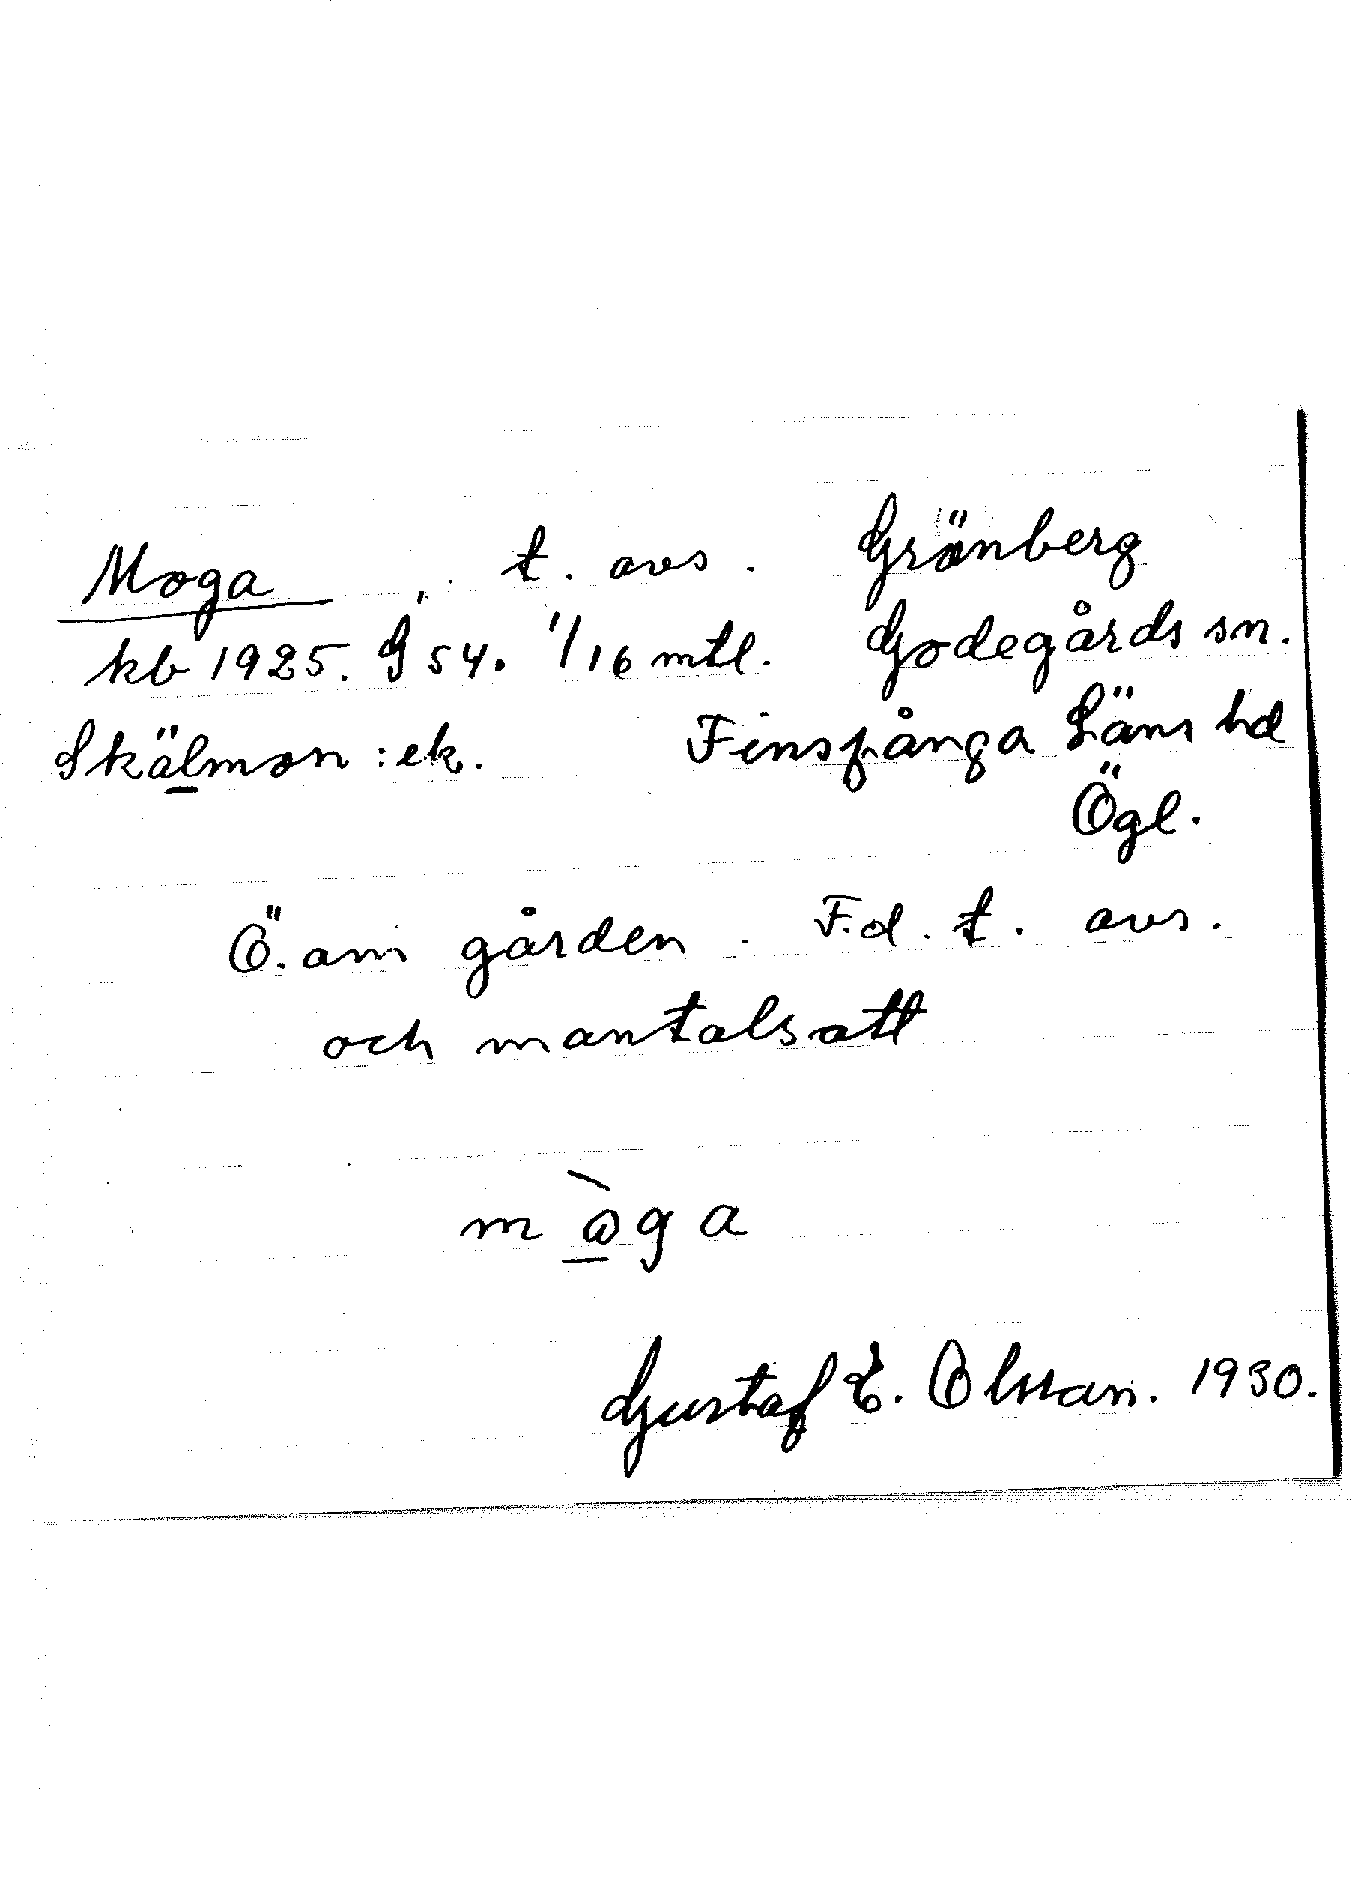 Moga t. avs. Grönberg
kb 1925. § 54. 1/16 mtl. Godegårds sn.
Skälmon : ek. Finspånga Läns hd
Ögl.
Ö. om gården. F.d. t. avs.
och mantalsatt
m òg a
Gustaf E. Olsson. 1930.